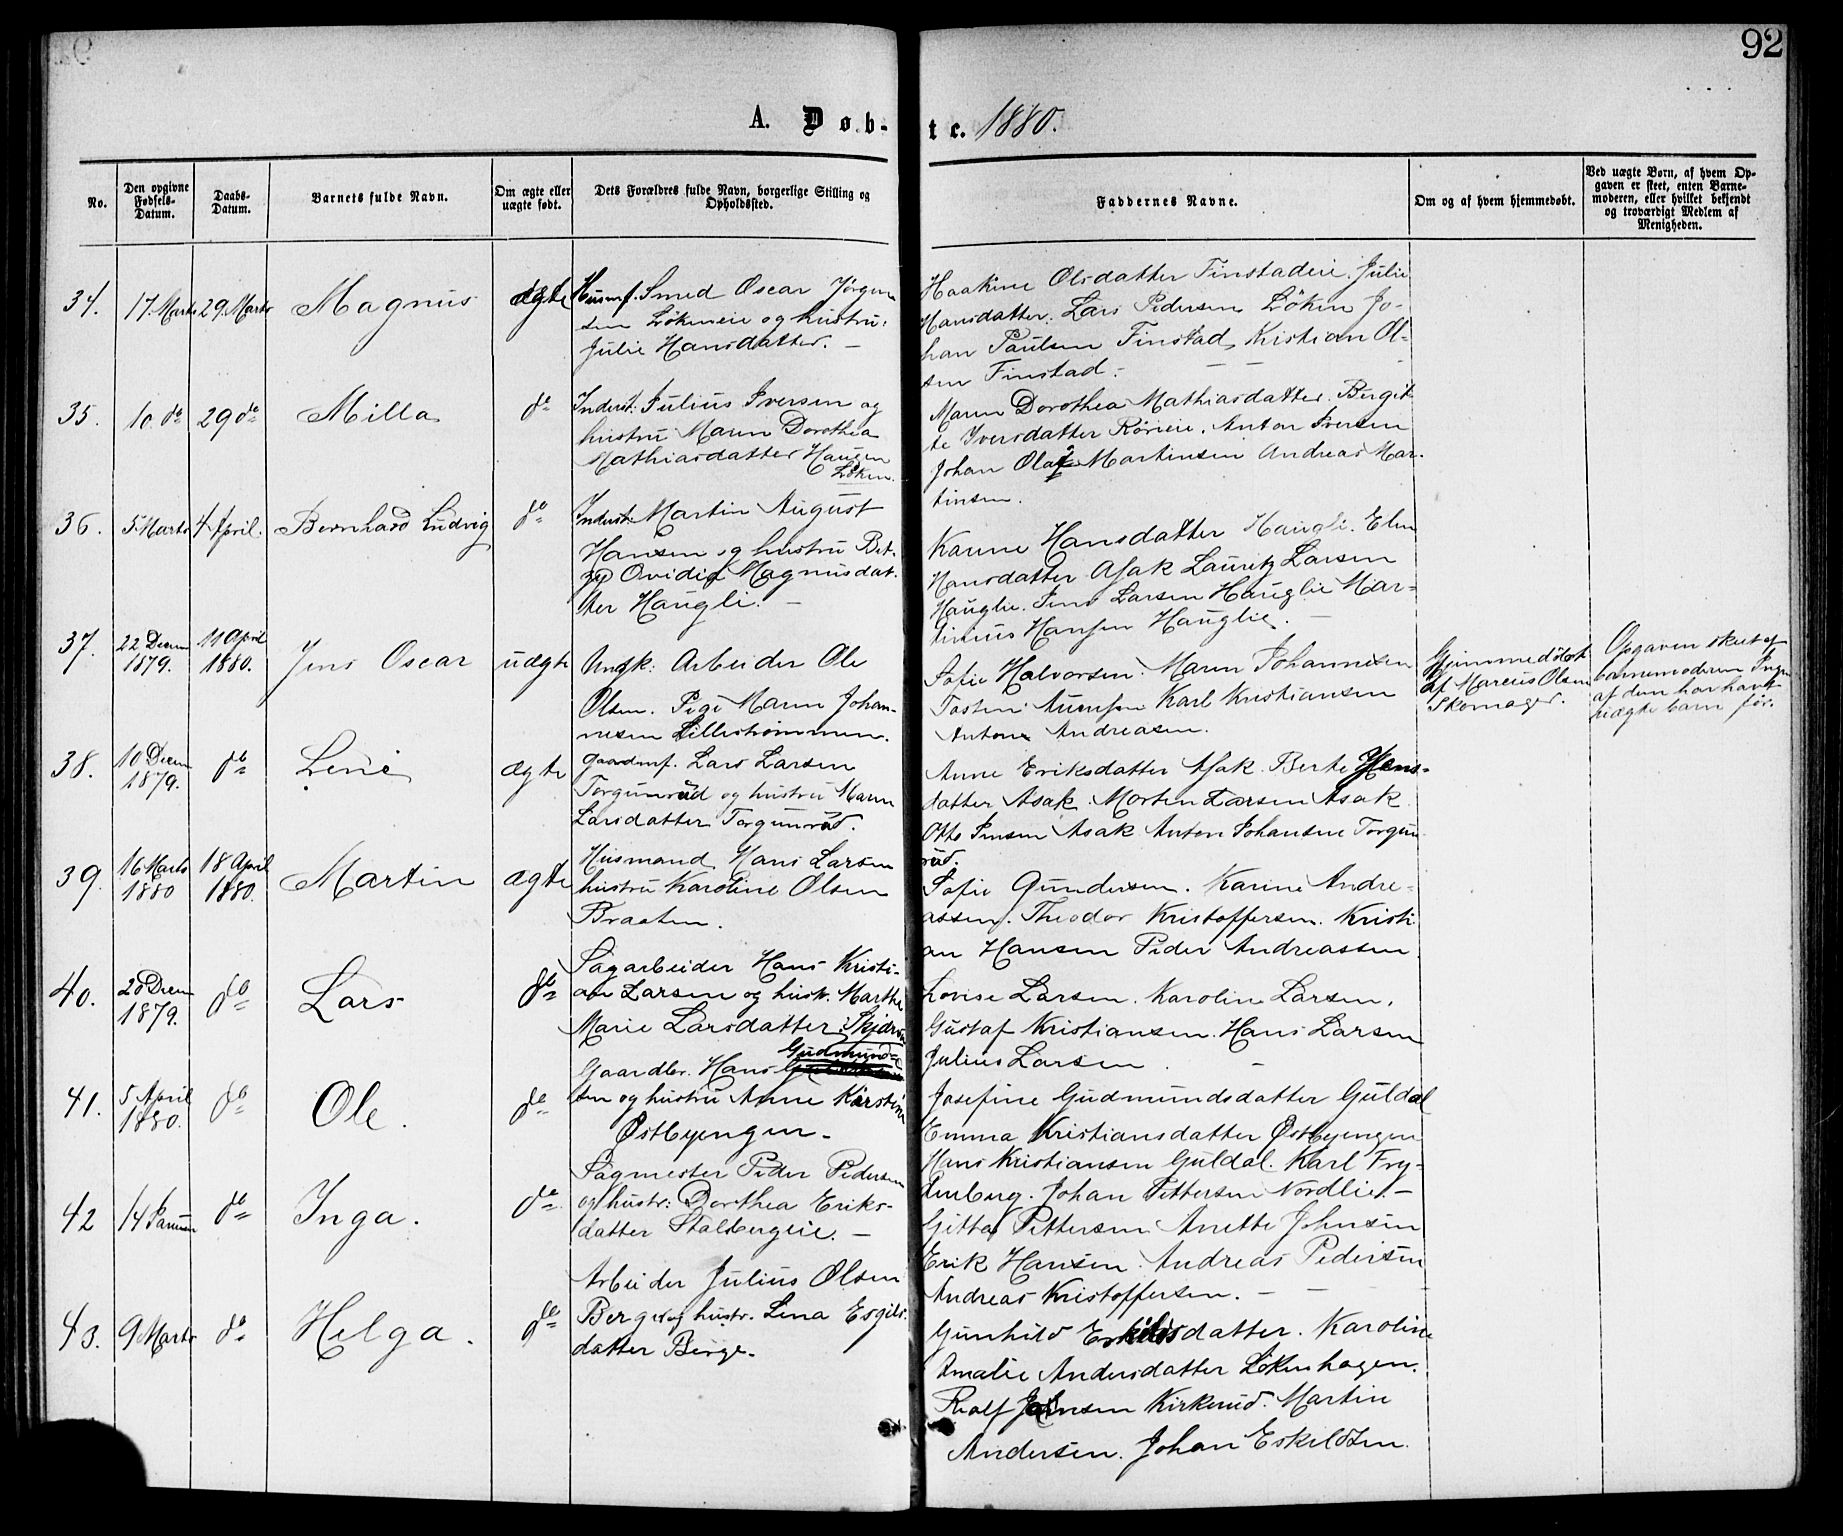 92
A. Døb-te. 1880.
No.
Den opgivne Fødsels-Datum.
Daabs-Datum.
Barnets fulde Navn.
Om ægte eller uægte født.
Dets Forældres fulde Navn, borgerlige Stilling og Opholdssted.
Faddernes Navne.
Om og af hvem hjemmedøbt.
Ved uægte Børn, af hvem Op-
gaven er skeet, enten Barne-
moderen, eller hvilket bekjendt
og troværdigt Medlem af
Menigheden.
34. 17. Marts 29. Marts Magnus ægte
Huusm. Smed Oscar Jørgen
sen Løkeneie og hustru
Julie Hansdatter. –
Haakine Olsdatter Finstadeie. Julie
Hansdatter. Lars Pedersen Løken Jo-
han Paulsen Finstad, Kristian Ol-
sen Finstad.
35. 10. do 29 do Milla do
Inderst. Julius Iversen og
hustru Maren Dorothea
Mathiasdatter Haugen
Løken.
Maren Dorothea Mathiasdatter. Bergit-
te Iversdatter Røreie. Anton Iversen
Johan Olaf Martinsen Andreas Mar-
tinsen.
36. 5 Marts 4 April. Bernhard Ludvig do
Inderst. Martin August
Hansen og hustru Bet-
zy Ovidia Magnusdat-
ter Haugli. –
Karine Hansdatter Haugli. Elen
Hansdatter Asak Lauritz Larsen
Hauglie. Jens Larsen Hauglie Mar-
tinius Hansen Hauglie. –
37. 22 Decem 1879. 11 April 1880. Jens Oscar uægte
Ungk. Arbeider Ole
Olsen. Pige Maren Johan-
nesen Lillestrømmen.
Sofie Halvorsen. Maren Johannesen
Tosten Aumsen Karl Kristiansen
Anton Andreasen.
Hjemmedøbt
af Marcus Olsen
Skomager.
Opgaven skeet af
barnemoderen Ingen
af dem har havt
uægte barn før.
38. 10 Decem 1879. do Lene ægte
Gaardmf. Lars Larsen
Torgunrud og hustru Maren
Larsdatter Torgunrud.
Anne Eriksdatter Asak Berte Hans-
datter Asak. Morten Larsen Asak
Otto Jensen Asak Anton Johansen Torgun
rud.
39. 16 Marts 1880 18 April 1880. Martin ægte
Husmand Hans Larsen
hustru Karoline Olsen
Braaten.
Sofie Gundersen. Karine Andre-
assen. Theodor Kristoffersen. Kristi
an Hansen Peder Andreassen.
40. 20 Decem 1879. do Lars do
Sagarbeider Hans Kristi-
an Larsen og hust. Marthe
Marie Larsdatter. Skjærva
Lovise Larsen. Karoline Larsen.
Gustaf Kristiansen. Hans Larsen
Julius Larsen. –
41. 5 April 1880. do Ole. do
Gaardbr. Hans Gudmund-
sen og hustru Anne Karstine
Østbyengen.
Josefine Gudmundsdatter Guldal
Emma Kristiansdatter Østbyengen
Hans Kristiansen Guldal. Karl Fry-
denberg. Johan Pettersen Nordlie. –
42 14 Januar do Inga. do
Sagmester Peder Pedersen
og hustr: Dorthea Eriks-
datter Stalsbergeie. –
Gitta Pettersen Anette Johnsen
Erik Hansen. Andreas Pedersen
Andreas Kristoffersen. –
43. 9 Marts do Helga. do
Arbeider Julius Olsen
Berg og hustr. Lina Esgils
datter Berge.
Gunhild Eskildsdatter. Karoline
Amalie Andersdatter Løkenhagen.
Rolf Johnsen Kirkerud. Martin
Andersen. Johan Eskildsen.